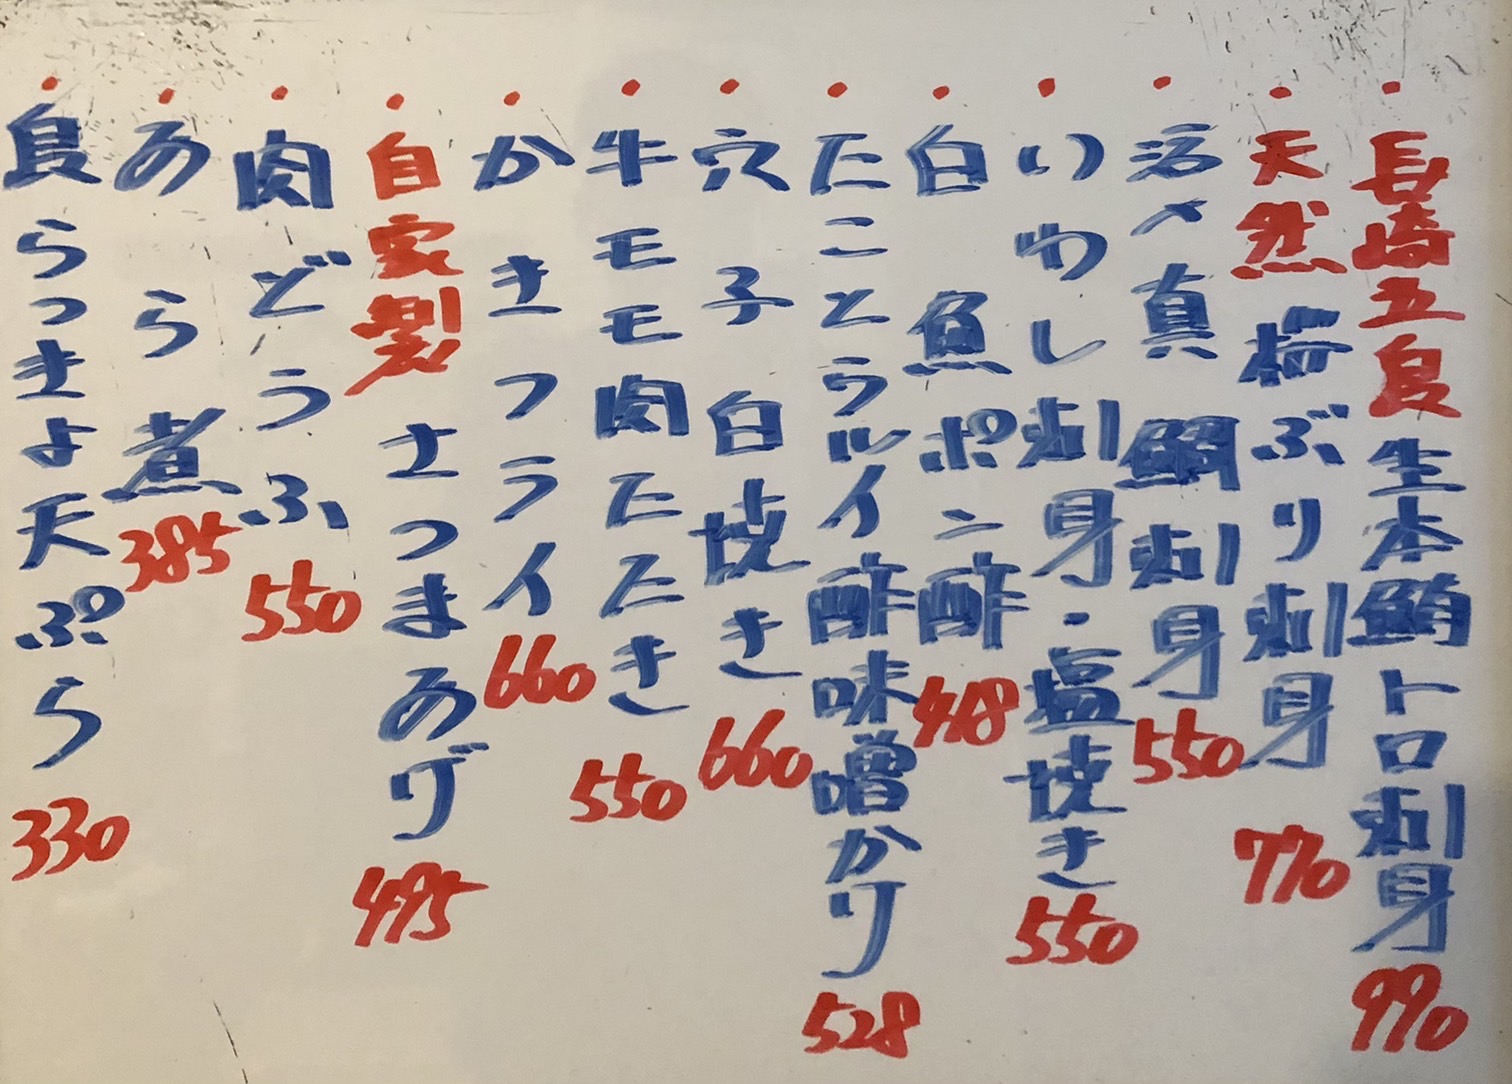 ・長崎五島生本鮪トロ刺身 990
・天然 ぶり刺身 770
・活〆真鯛刺身 550
・いわし刺身・塩焼き 550
・白魚ポン酢 418
・たことウルイ酢味噌かけ 528
・穴子白焼き 660
・牛モモ肉たたき 550
・かきフライ 660
・自家製さつまあげ 495
・肉どうふ 550
・あら煮 385
・島らっきょ天ぷら 330